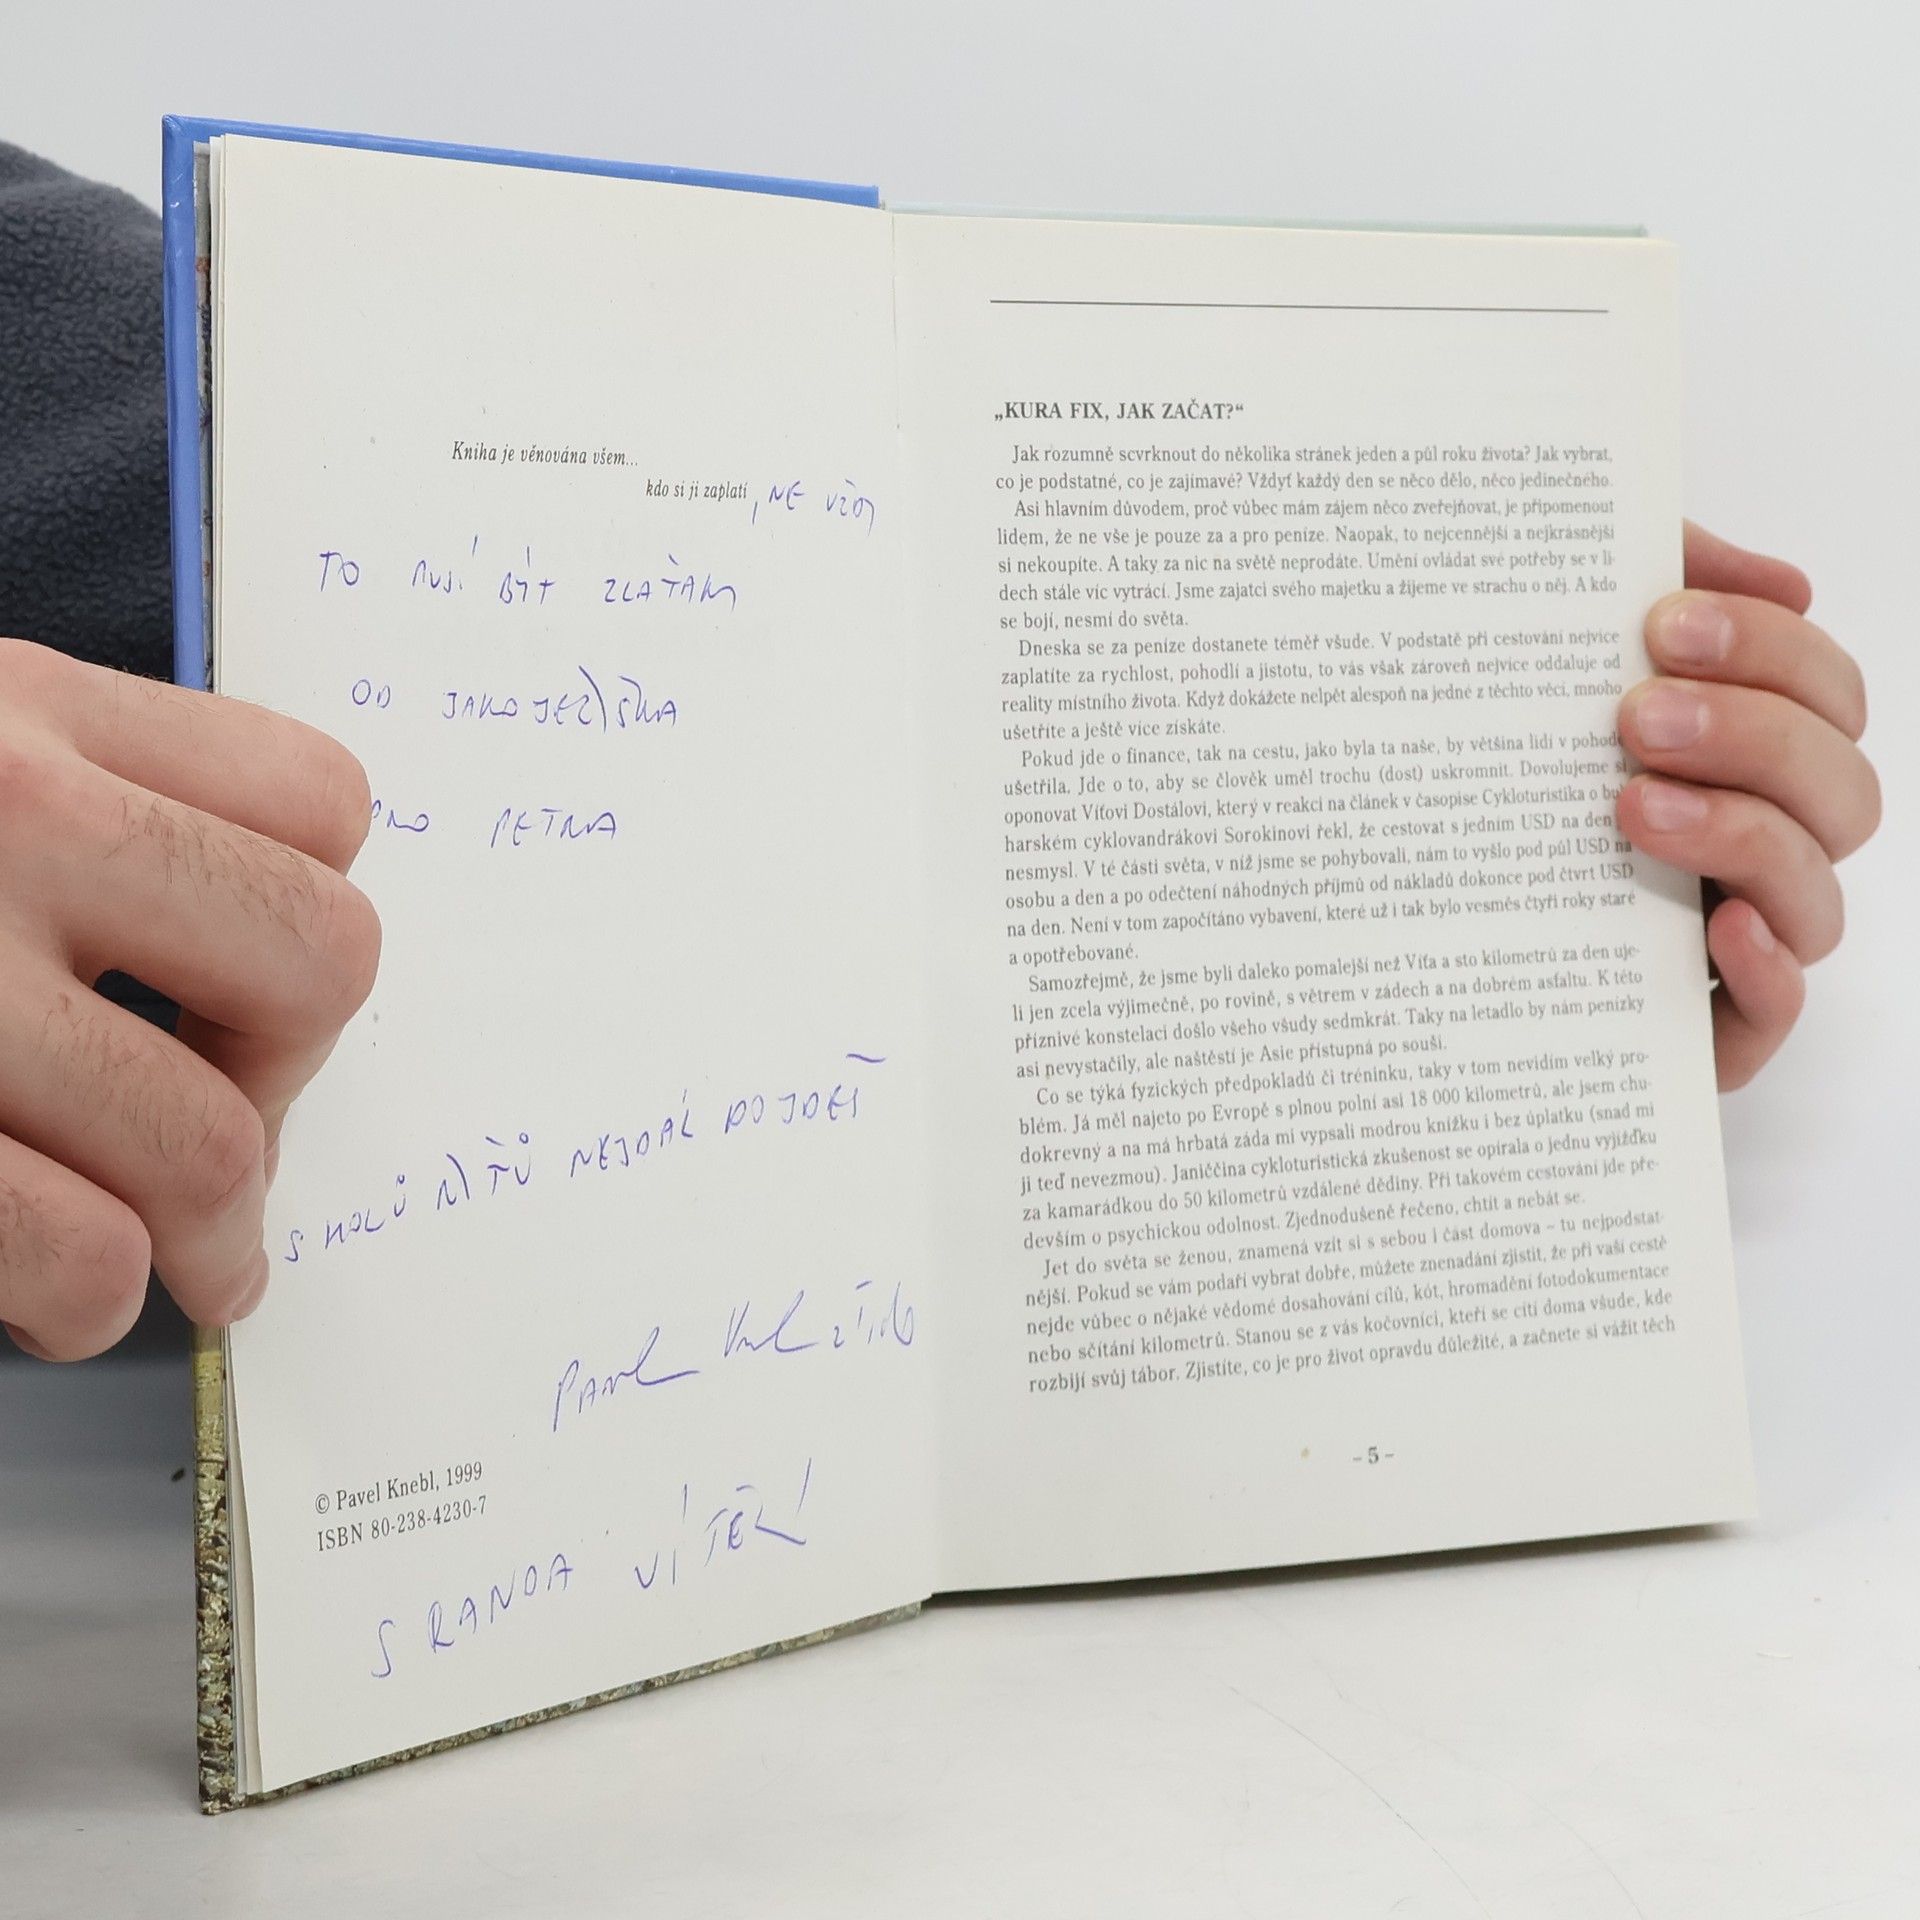 Kniha je věnována všem...
kdo si ji zaplatí, NE VŽDY
TO MUSÍ BÝT ZLAŤÁKY
OD JAKO JEŽÍŠKA
PRO PETRA
S HOLŮ NEJDÁL DOJDEŠ
PAVEL
© Pavel Knebl, 1999
ISBN 80-238-4230-7
SRANDA VÍTĚZÍ
„KURA FIX, JAK ZAČAT?“
Jak rozumně scvrknout do několika stránek jeden a půl roku života? Jak vybrat,
co je podstatné, co je zajímavé? Vždyť každý den se něco dělo, něco jedinečného.
Asi hlavním důvodem, proč vůbec mám zájem něco zveřejňovat, je připomenout
lidem, že ne vše je pouze za a pro peníze. Naopak, to nejcennější a nejkrásnější
si nekoupíte. A taky za nic na světě neprodáte. Umění ovládat své potřeby se v li-
dech stále víc vytrácí. Jsme zajatci svého majetku a žijeme ve strachu o něj. A kdo
se bojí, nesmí do světa.
Dneska se za peníze dostanete téměř všude. V podstatě při cestování nejvíce
zaplatíte za rychlost, pohodlí a jistotu, to vás však zároveň nejvíce oddaluje od
reality místního života. Když dokážete nelpět alespoň na jedné z těchto věcí, mnoho
ušetříte a ještě více získáte.
Pokud jde o finance, tak na cestu, jako byla ta naše, by většina lidí v pohodě
ušetřila. Jde o to, aby se člověk uměl trochu (dost) uskromnit. Dovolujeme si
oponovat Víťovi Dostálovi, který v reakci na článek v časopise Cykloturistika o bul-
harském cyklovandrákovi Sorokinovi řekl, že cestovat s jedním USD na den
nesmysl. V té části světa, v níž jsme se pohybovali, nám to vyšlo pod půl USD na
osobu a den a po odečtení náhodných příjmů od nákladů dokonce pod čtvrt USD
na den. Není v tom započítáno vybavení, které už i tak bylo vesměs čtyři roky staré
a opotřebované.
Samozřejmě, že jsme byli daleko pomalejší než Víťa a sto kilometrů za den uje-
li jen zcela výjimečně, po rovině, s větrem v zádech a na dobrém asfaltu. K této
příznivé konstelaci došlo všeho všudy sedmkrát. Taky na letadlo by nám penízky
asi nevystačily, ale naštěstí je Asie přístupná po souši.
Co se týká fyzických předpokladů či tréninku, taky v tom nevidím velký pro-
blém. Já měl najeto po Evropě s plnou polní asi 18 000 kilometrů, ale jsem chu-
dokrevný a na má hrbatá záda mi vypsali modrou knížku i bez úplatku (snad mi
ji teď nevezmou). Janiččina cykloturistická zkušenost se opírala o jednu vyjížďku
za kamarádkou do 50 kilometrů vzdálené dědiny. Při takovém cestování jde pře-
devším o psychickou odolnost. Zjednodušeně řečeno, chtít a nebát se.
Jet do světa se ženou, znamená vzít si s sebou i část domova – tu nejpodstat-
nější. Pokud se vám podaří vybrat dobře, můžete znenadání zjistit, že při vaší cestě
nejde vůbec o nějaké vědomé dosahování cílů, kót, hromadění fotodokumentace
nebo sčítání kilometrů. Stanou se z vás kočovníci, kteří se cítí doma všude, kde
rozbijí svůj tábor. Zjistíte, co je pro život opravdu důležité, a začnete si vážit těch
– 5 –